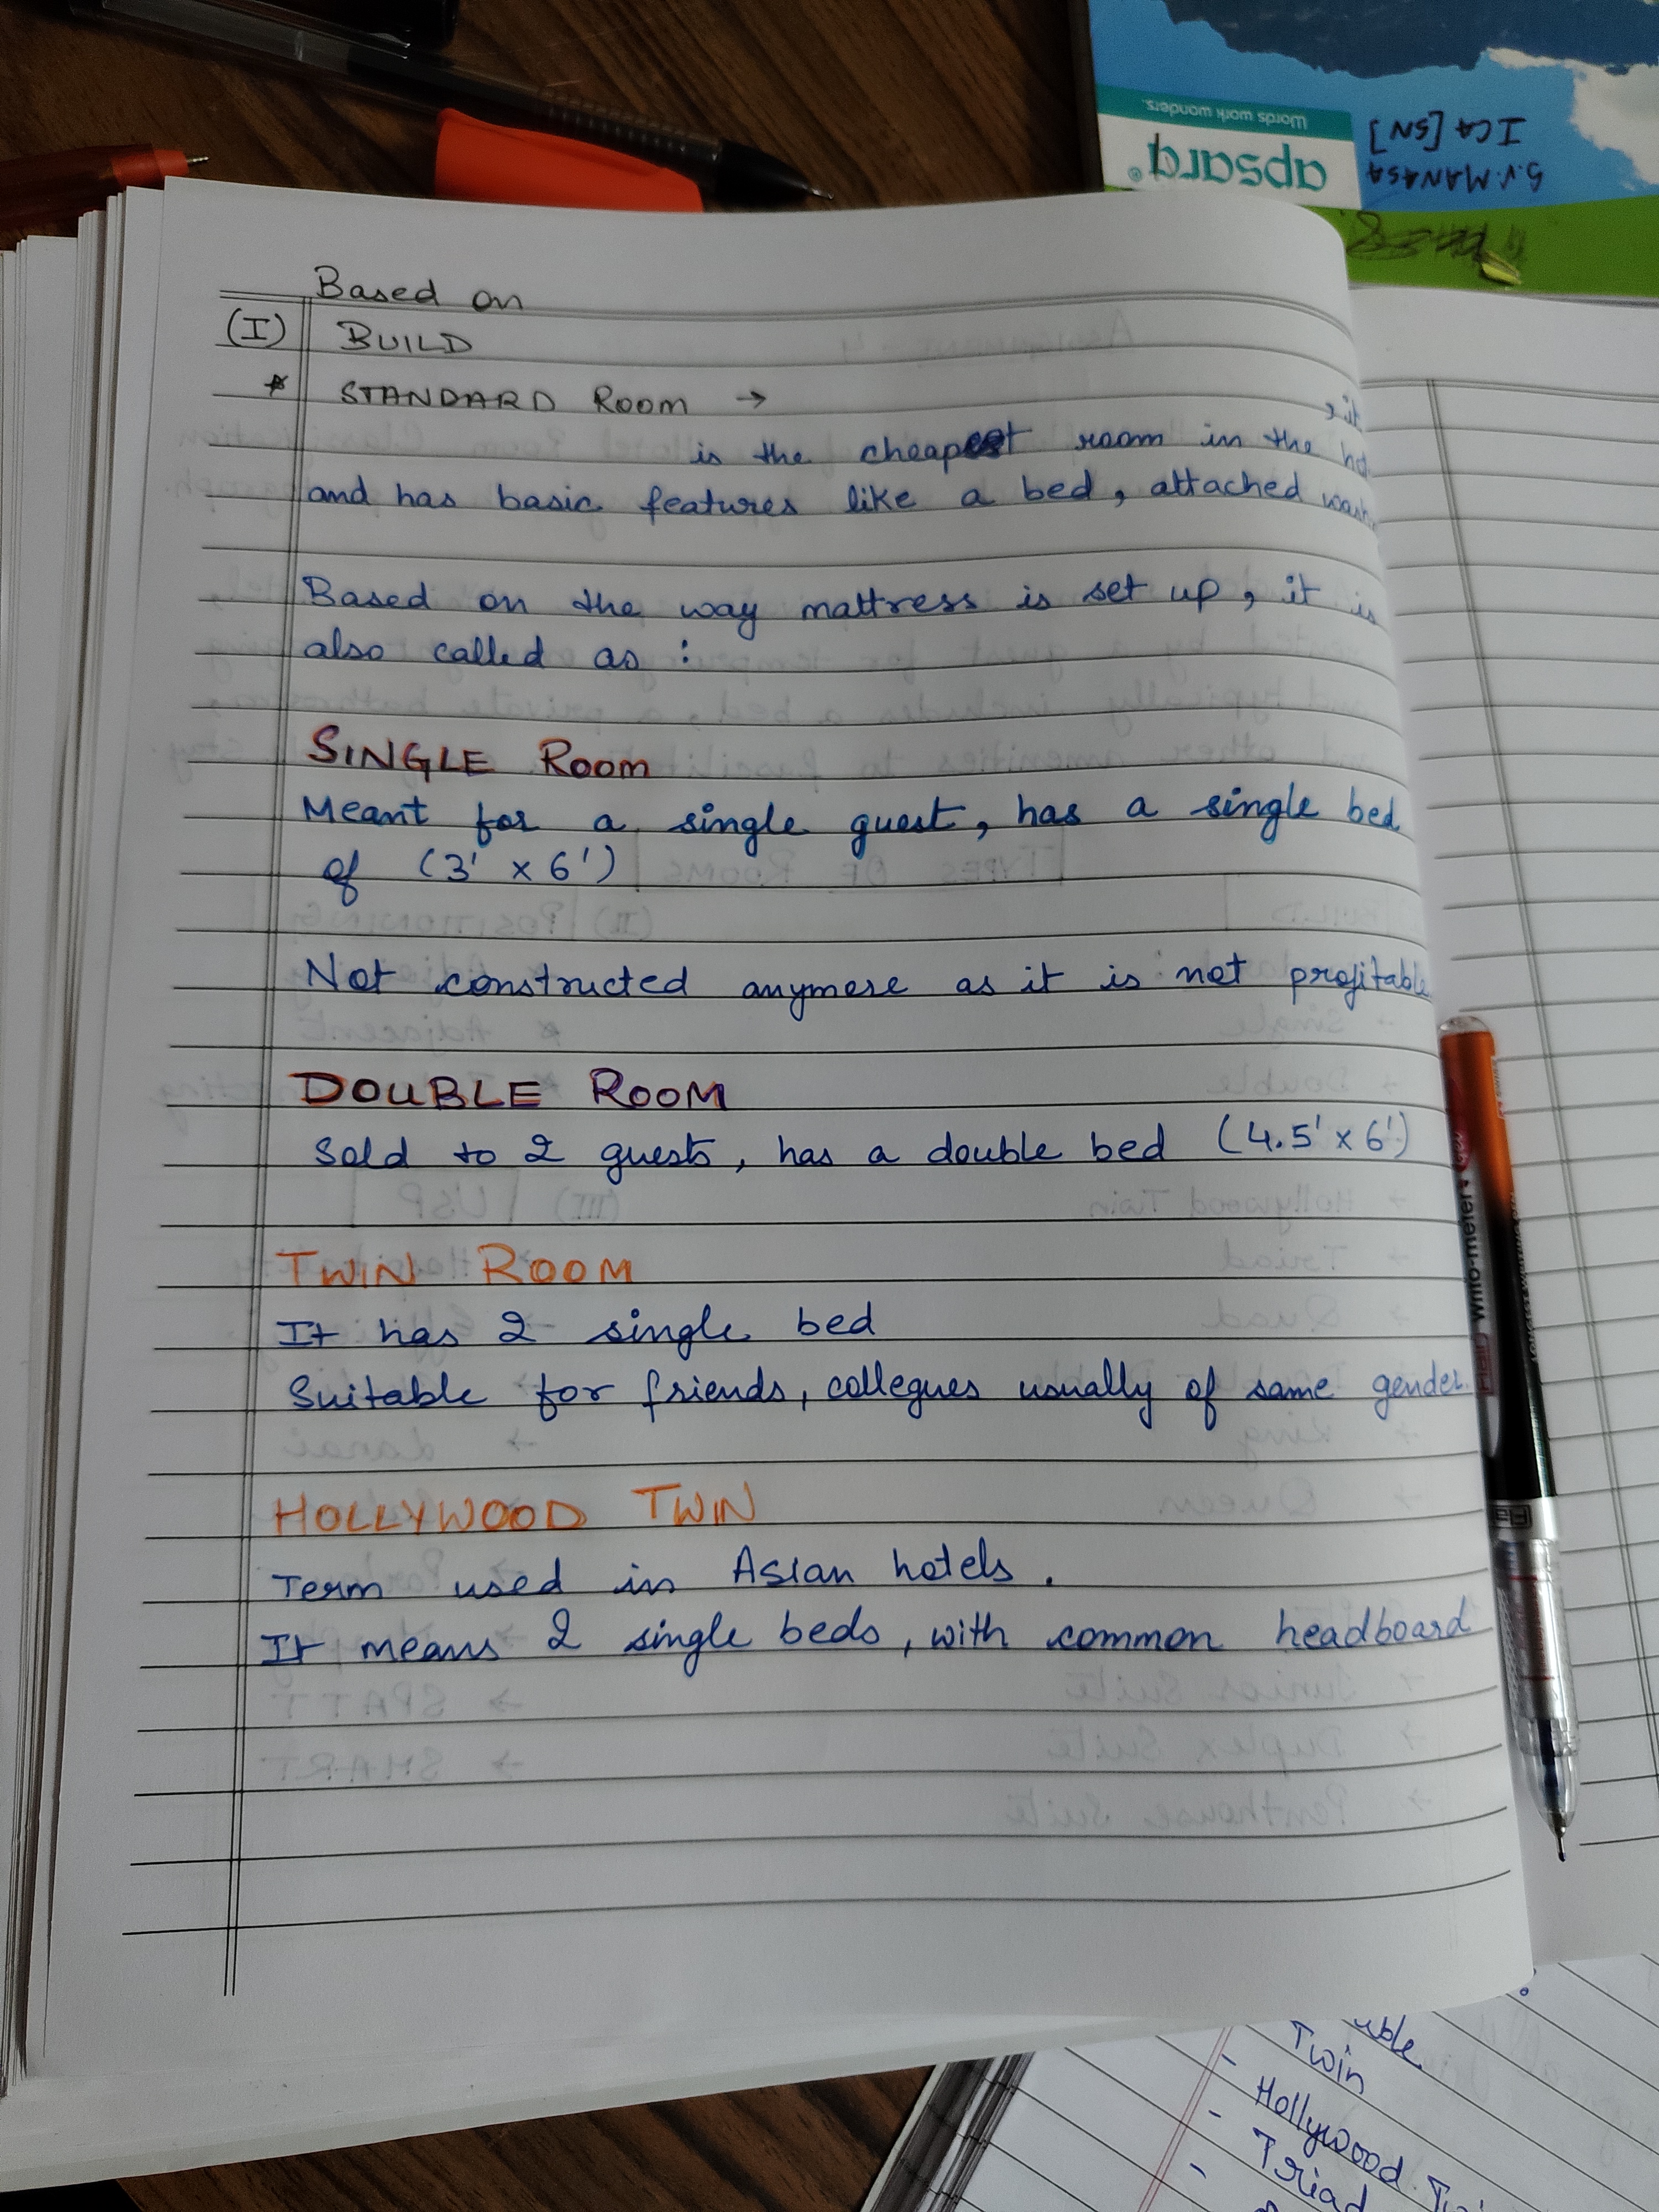 Based on
(I) BUILD
* STANDARD Room →
is the cheapest room in the
and has basic features like a bed, attached
Based on the way mattress is set up, it is
also called as :
SINGLE Room
Meant for a single guest, has a single bed
of (3' x 6')
Not constructed anymore as it is not profitable
DOUBLE ROOM
Sold to 2 guests, has a double bed (4.5' x 6')
TWIN ROOM
It has 2 single bed
Suitable for friends, collegues usually of same gender.
HOLLYWOOD TWIN
Term used in Asian hotels.
It means 2 single beds, with common headboard
apsara
Words work wonders.
S.V. MANASA
ICA [SN]
Writo-meter
Twin
- Hollywood
- Triad